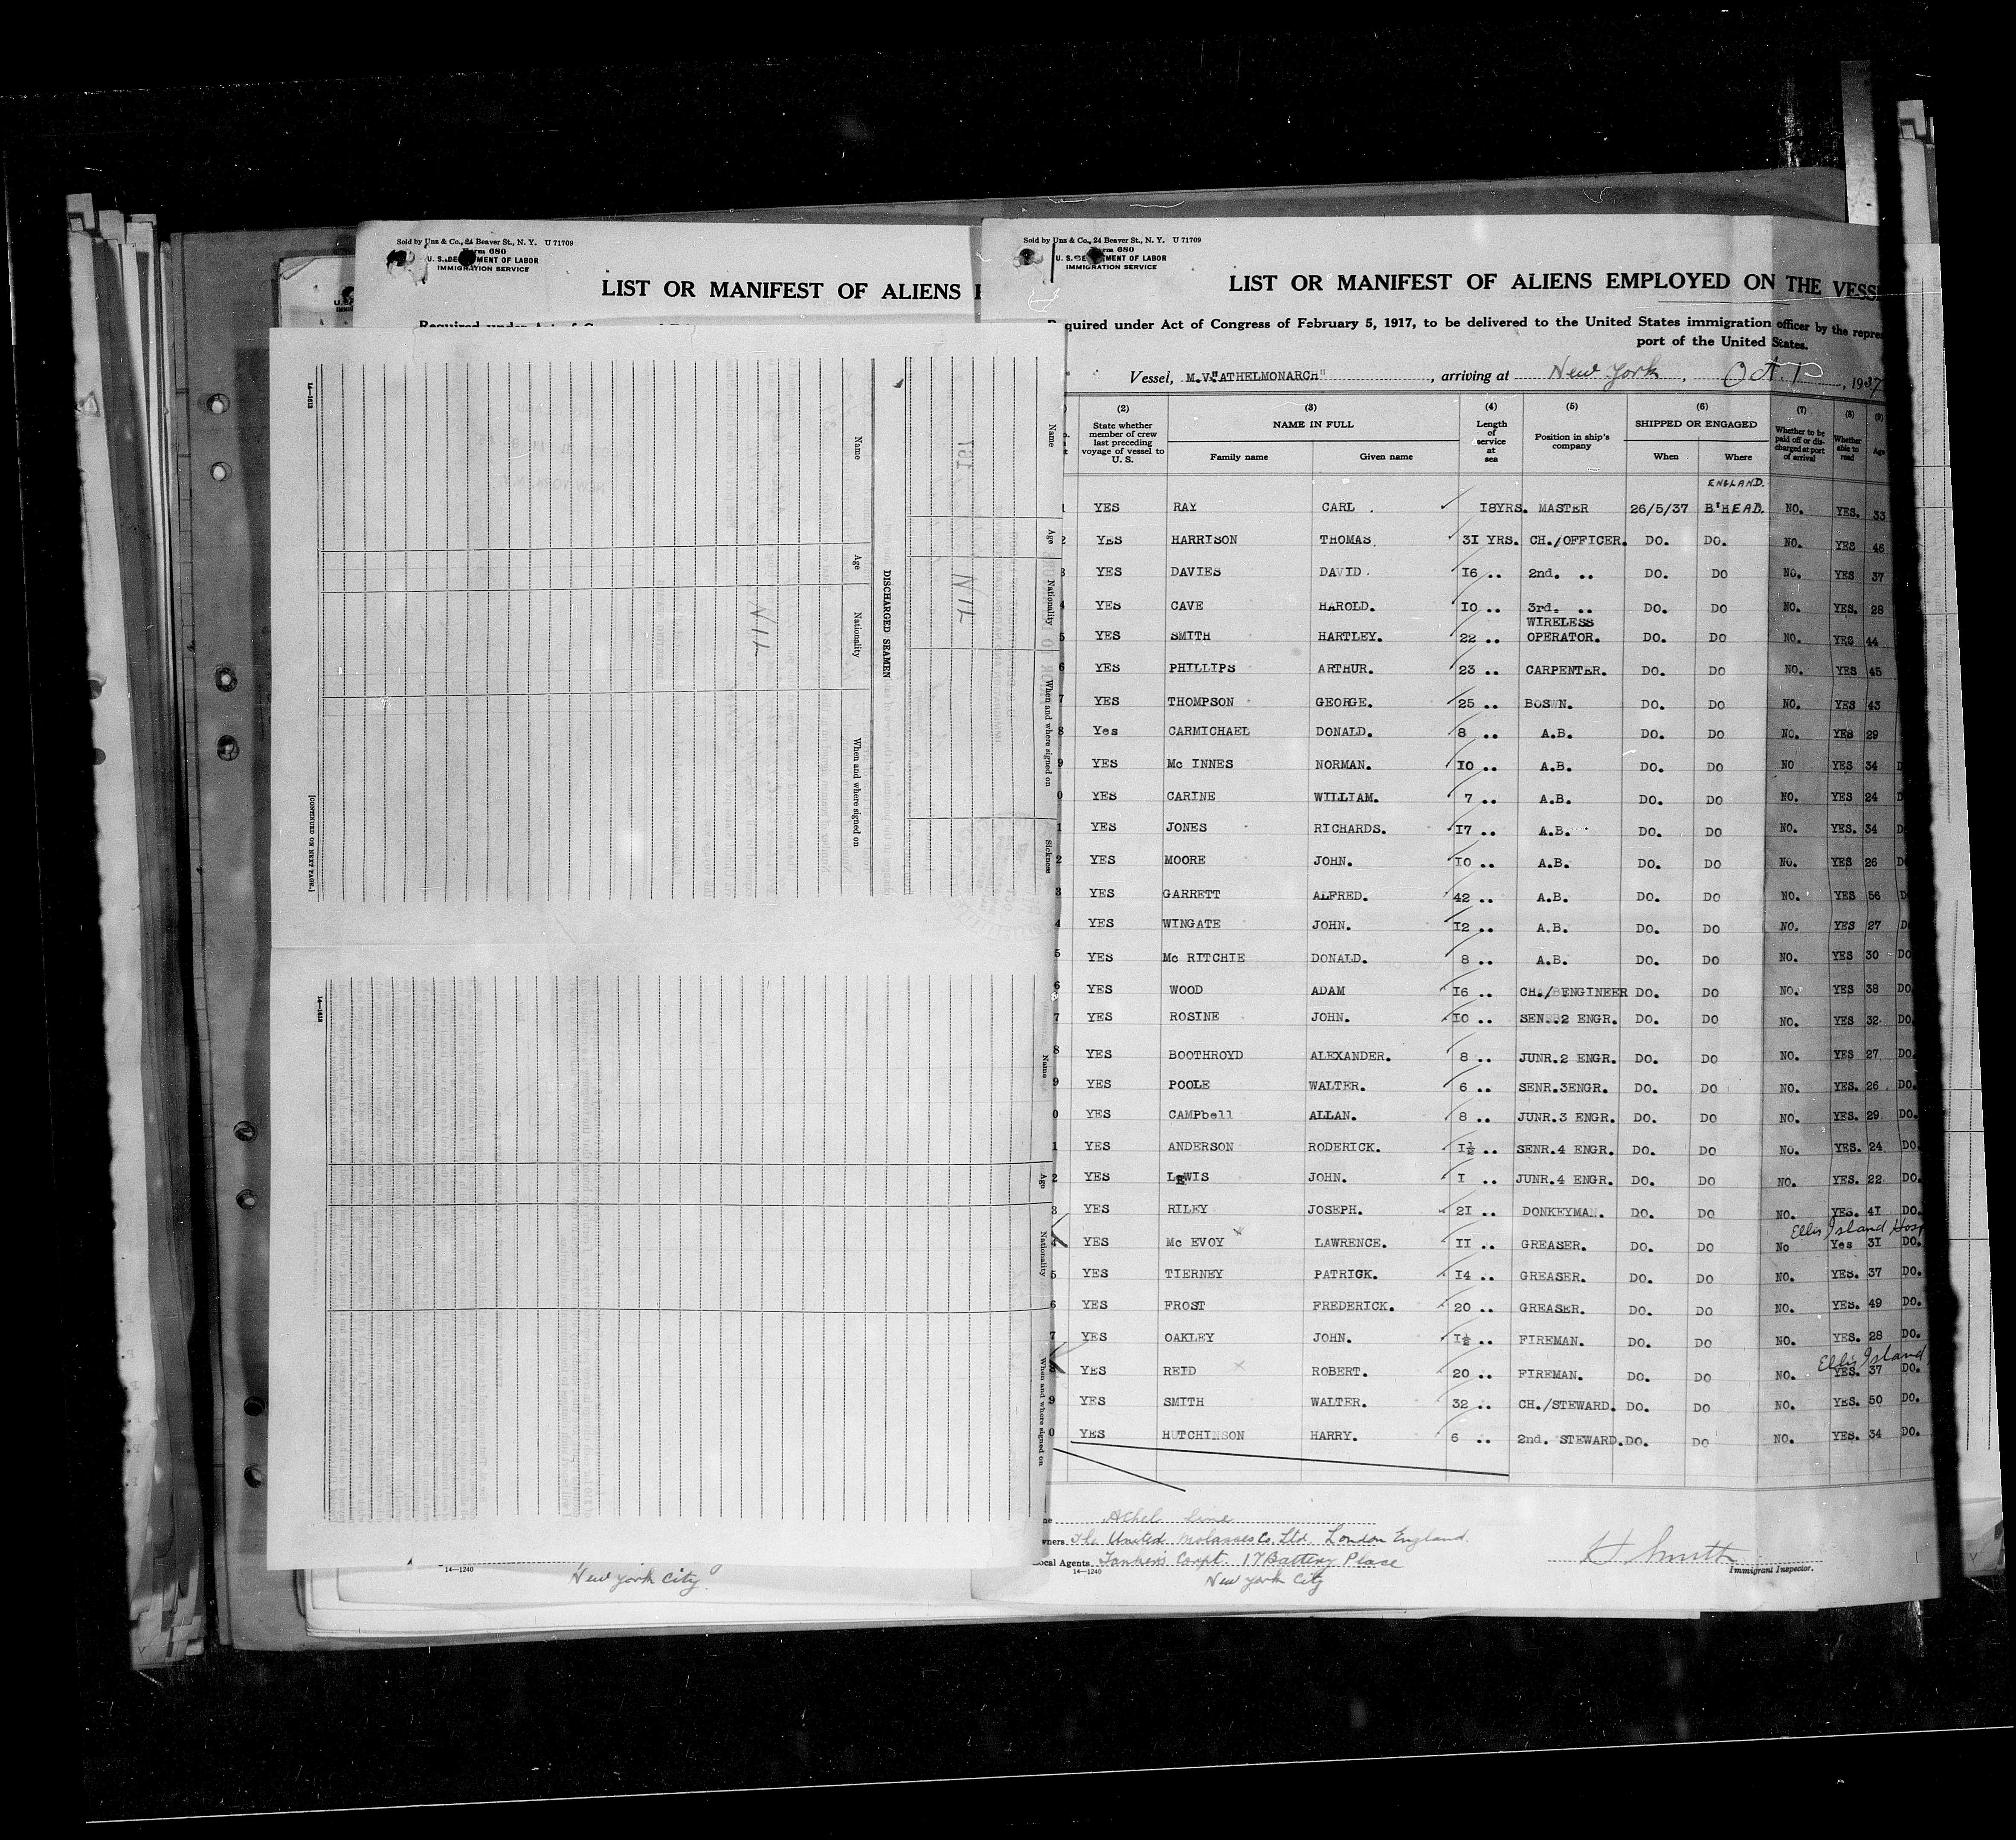 Sold by Unz & Co., 24 Beaver St., N. Y. U 71709
Form 680
U. S. DEPARTMENT OF LABOR
IMMIGRATION SERVICE
LIST OR MANIFEST OF ALIENS
14—1240
New York City
Name
Age
Nationality
When and where signed on
Sickness
151
NIL
DISCHARGED SEAMEN
Name
Age
Nationality
When and where signed on
NIL
[CONTINUED ON NEXT PAGE.]
14—1613
Name
Age
Nationality
When and where signed on
14—1613
Sold by Unz & Co., 24 Beaver St., N. Y. U 71709
Form 680
U. S. DEPARTMENT OF LABOR
IMMIGRATION SERVICE
LIST OR MANIFEST OF ALIENS EMPLOYED ON THE VESS
Required under Act of Congress of February 5, 1917, to be delivered to the United States immigration officer by the repre
port of the United States.
Vessel, M.V."ATHELMONARCH", arriving at New York, Oct. 1, 1937
(2) (3) (4) (5) (6) (7) (8) (9)
State whether member of crew last preceding voyage of vessel to U. S. NAME IN FULL Length of service at sea Position in ship's company SHIPPED OR ENGAGED Whether to be paid off or discharged at port of arrival Whether able to read Age
Family name Given name When Where
ENGLAND.
1 YES RAY CARL . 18YRS. MASTER 26/5/37 B'HEAD. NO. YES. 33
2 YES HARRISON THOMAS. 31 YRS. CH./OFFICER. DO. DO. NO. YES 46
3 YES DAVIES DAVID. 16 .. 2nd. .. DO. DO NO. YES 37
4 YES CAVE HAROLD. 10 .. 3rd. .. DO. DO NO. YES. 28
WIRELESS
5 YES SMITH HARTLEY. 22 .. OPERATOR. DO. DO NO. YES 44
6 YES PHILLIPS ARTHUR. 23 .. CARPENTER. DO. DO NO. YES 45
7 YES THOMPSON GEORGE. 25 .. BOSWN. DO. DO NO. YES 43
8 Yes CARMICHAEL DONALD. 8 .. A.B. DO. DO NO. YES 29
9 YES Mc INNES NORMAN. 10 .. A.B. DO. DO NO YES 34 D
0 YES CARINE WILLIAM. 7 .. A.B. DO. DO NO. YES 24 D
1 YES JONES RICHARDS. 17 .. A.B. DO. DO NO. YES. 34 D
2 YES MOORE JOHN. 10 .. A.B. DO. DO NO. YES 26 D
3 YES GARRETT ALFRED. 42 .. A.B. DO. DO NO. YES 56 D
4 YES WINGATE JOHN. 12 .. A.B. DO. DO NO. YES 27 D
5 YES Mc RITCHIE DONALD. 8 .. A.B. DO. DO NO. YES 30 DO
6 YES WOOD ADAM 16 .. CH./ENGINEER DO. DO NO. YES 38 DO.
7 YES ROSINE JOHN. 10 .. SEN. 2 ENGR. DO. DO NO. YES 32 DO.
8 YES BOOTHROYD ALEXANDER. 8 .. JUNR.2 ENGR. DO. DO NO. YES 27 DO.
9 YES POOLE WALTER. 6 .. SENR.3ENGR. DO. DO NO. YES. 26 DO.
0 YES CAMPbell ALLAN. 8 .. JUNR.3 ENGR. DO. DO NO. YES. 29 DO.
1 YES ANDERSON RODERICK. 1½ .. SENR.4 ENGR. DO. DO NO. YES. 24 DO.
2 YES LEWIS JOHN. 1 .. JUNR.4 ENGR. DO. DO NO. YES. 22 DO.
3 YES RILEY JOSEPH. 21 .. DONKEYMAN. DO. DO NO. YES. 41 DO.
Ellis Island Hosp
4 YES Mc EVOY LAWRENCE. 11 .. GREASER. DO. DO No Yes 31 DO.
5 YES TIERNEY PATRICK. 14 .. GREASER. DO. DO NO. YES. 37 DO.
6 YES FROST FREDERICK. 20 .. GREASER. DO. DO NO. YES. 49 DO.
7 YES OAKLEY JOHN. 1½ .. FIREMAN. DO. DO NO. YES. 28 DO.
Ellis Island
YES REID ROBERT. 20 .. FIREMAN. DO. DO NO. YES. 37 DO.
9 YES SMITH WALTER. 32 .. CH./STEWARD. DO. DO NO. YES. 50 DO.
0 YES HUTCHINSON HARRY. 6 .. 2nd. STEWARD. DO. DO NO. YES. 34 DO.
Athel Line
The United Molasses Co Ltd. London England.
Local Agents Tankers Corpt. 17 Battery Place
14—1240
New York City
H Smith
Immigrant Inspector.